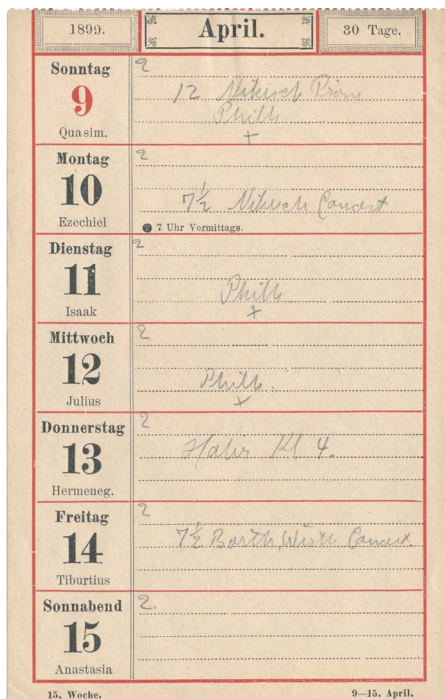 1899.
April.
30 Tage.
Sonntag
9
Quasim.
2
12 Nikisch
Philh
+
Montag
10
Ezechiel
2
7½ Nikisch Concert
7 Uhr Vormittags.
Dienstag
11
Isaak
2
Philh
+
Mittwoch
12
Julius
2
Philh.
+
Donnerstag
13
Hermeneg.
2
Halir Kl 4.
Freitag
14
Tiburtius
2
7½ Barth, Wirth Concert
Sonnabend
15
Anastasia
2.
15. Woche.
9—15. April.